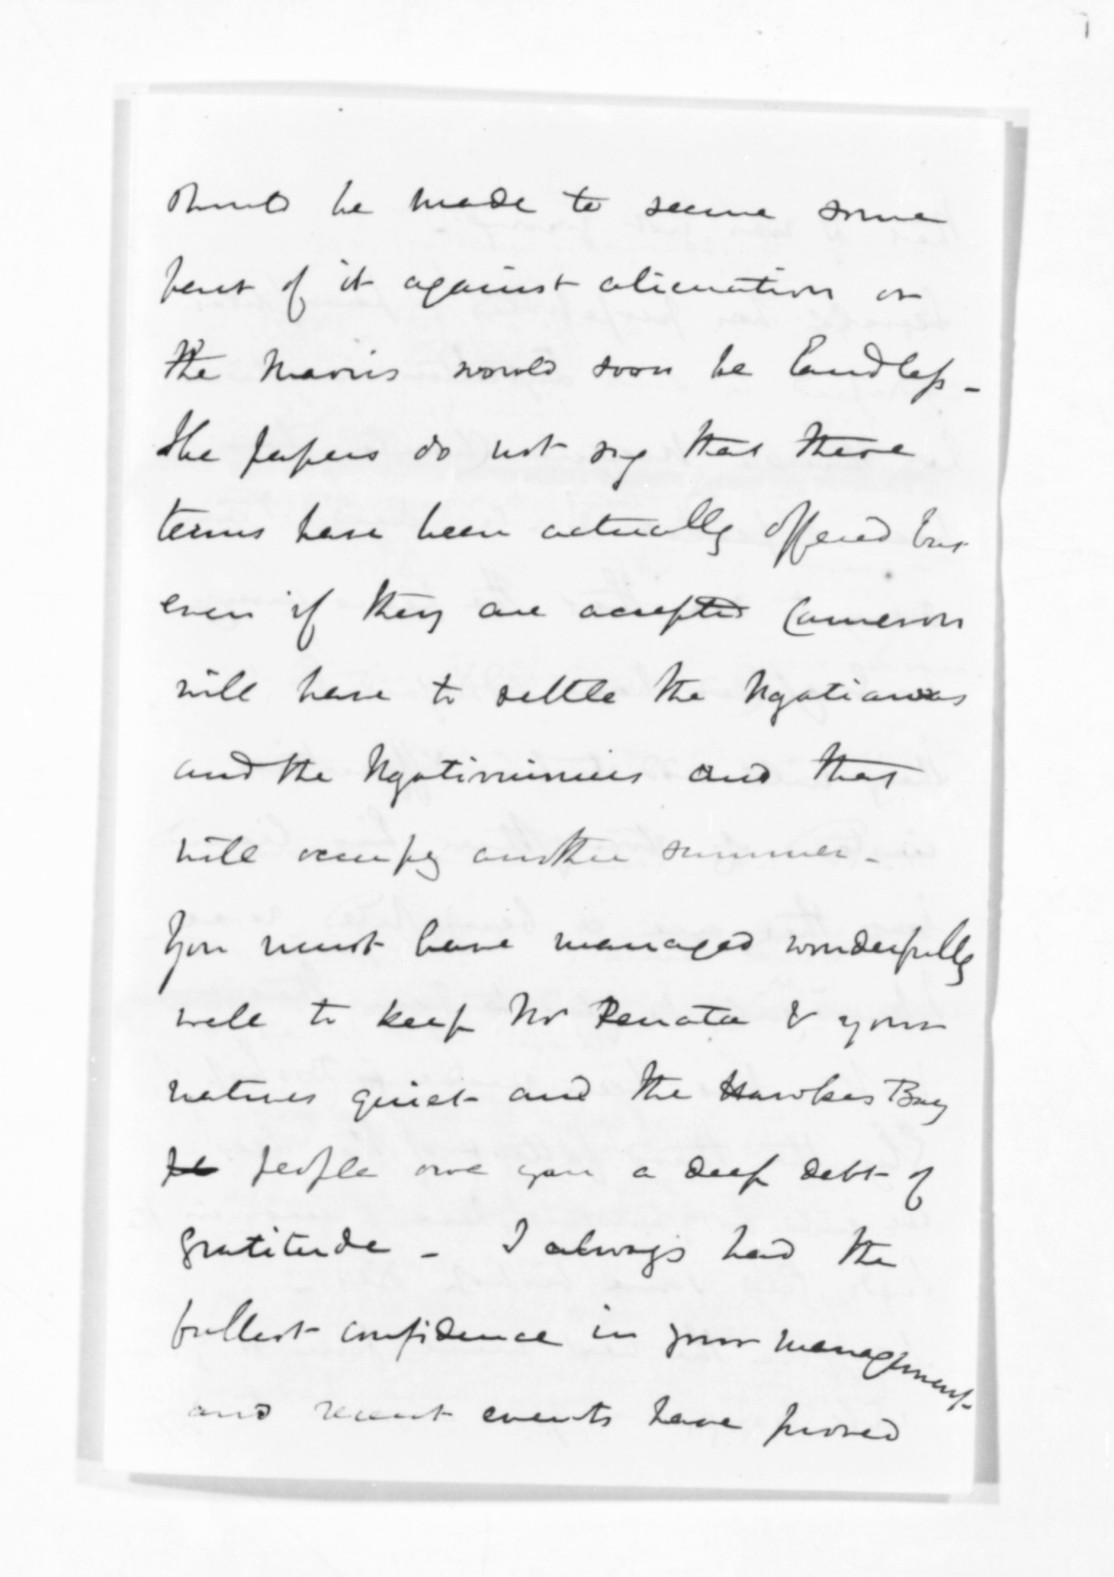 should be made to secure some
part of it against alienation or
the Maoris would soon be landless -
The papers do not say that these
terms have been actually offered but
even if they are accepted Cameron
will have to settle the Ngatiawas
and the Ngatiruinuis and that
will occupy another summer -
You must have managed wonderfully
well to keep Mr Renata & your
natives quiet and the Hawkes Bay
people owe you a deep debt of
gratitude - I always had the
fullest confidence in your management
and recent events have proved